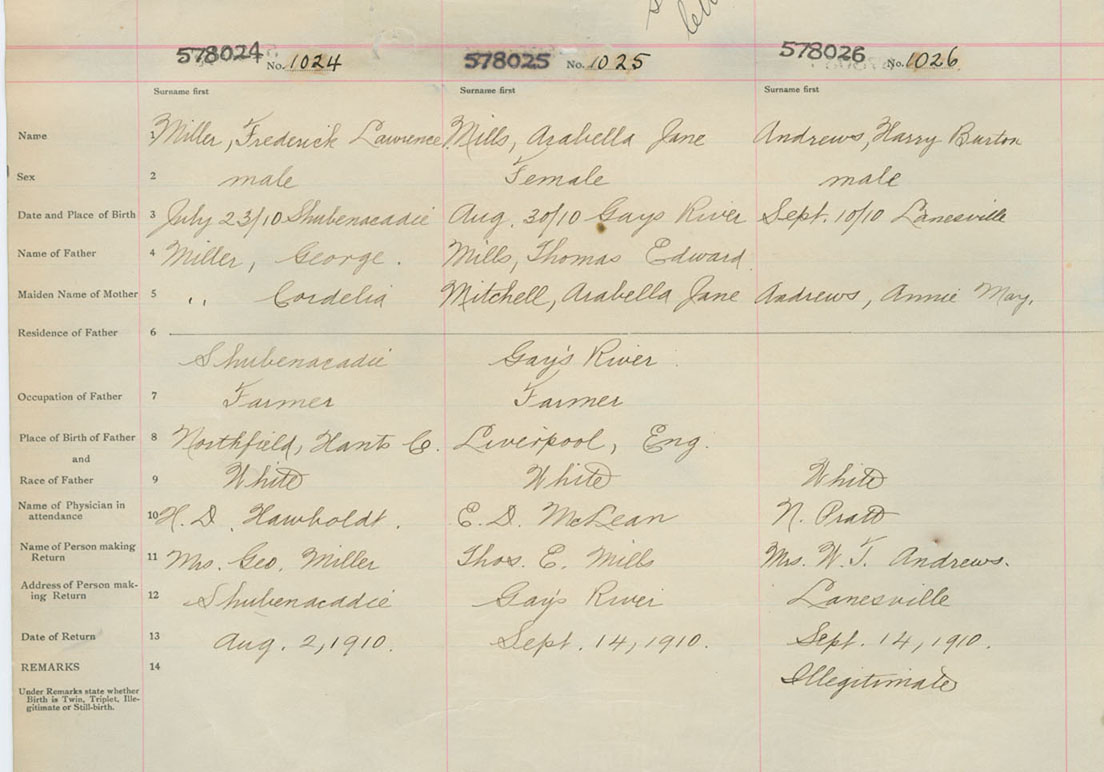 578024 No. 1024 578025 No. 1025 578026 No. 1026
Surname first Surname first Surname first
Name 1 Miller, Frederick Lawrence Mills, Arabella Jane Andrews, Harry Burton
Sex 2 male Female male
Date and Place of Birth 3 July 23/10 Shubenacadie Aug. 30/10 Gays River Sept. 10/10 Lanesville
Name of Father 4 Miller, George. Mills, Thomas Edward
Maiden Name of Mother 5 " Cordelia Mitchell, Arabella Jane Andrews, Annie May.
Residence of Father 6
Shubenacadie Gay's River
Occupation of Father 7 Farmer Farmer
Place of Birth of Father 8 Northfield, Hants C. Liverpool, Eng.
and
Race of Father 9 White White White
Name of Physician in
attendance 10 H. D. Hawboldt. E. D. McLean N. Pratt
Name of Person making
Return 11 Mrs. Geo. Miller Thos. E. Mills Mrs. W. T. Andrews.
Address of Person mak-
ing Return 12 Shubenacadie Gay's River Lanesville
Date of Return 13 Aug. 2, 1910. Sept. 14, 1910. Sept. 14, 1910.
REMARKS 14 Illegitimate
Under Remarks state whether
Birth is Twin, Triplet, Ille-
gitimate or Still-birth.